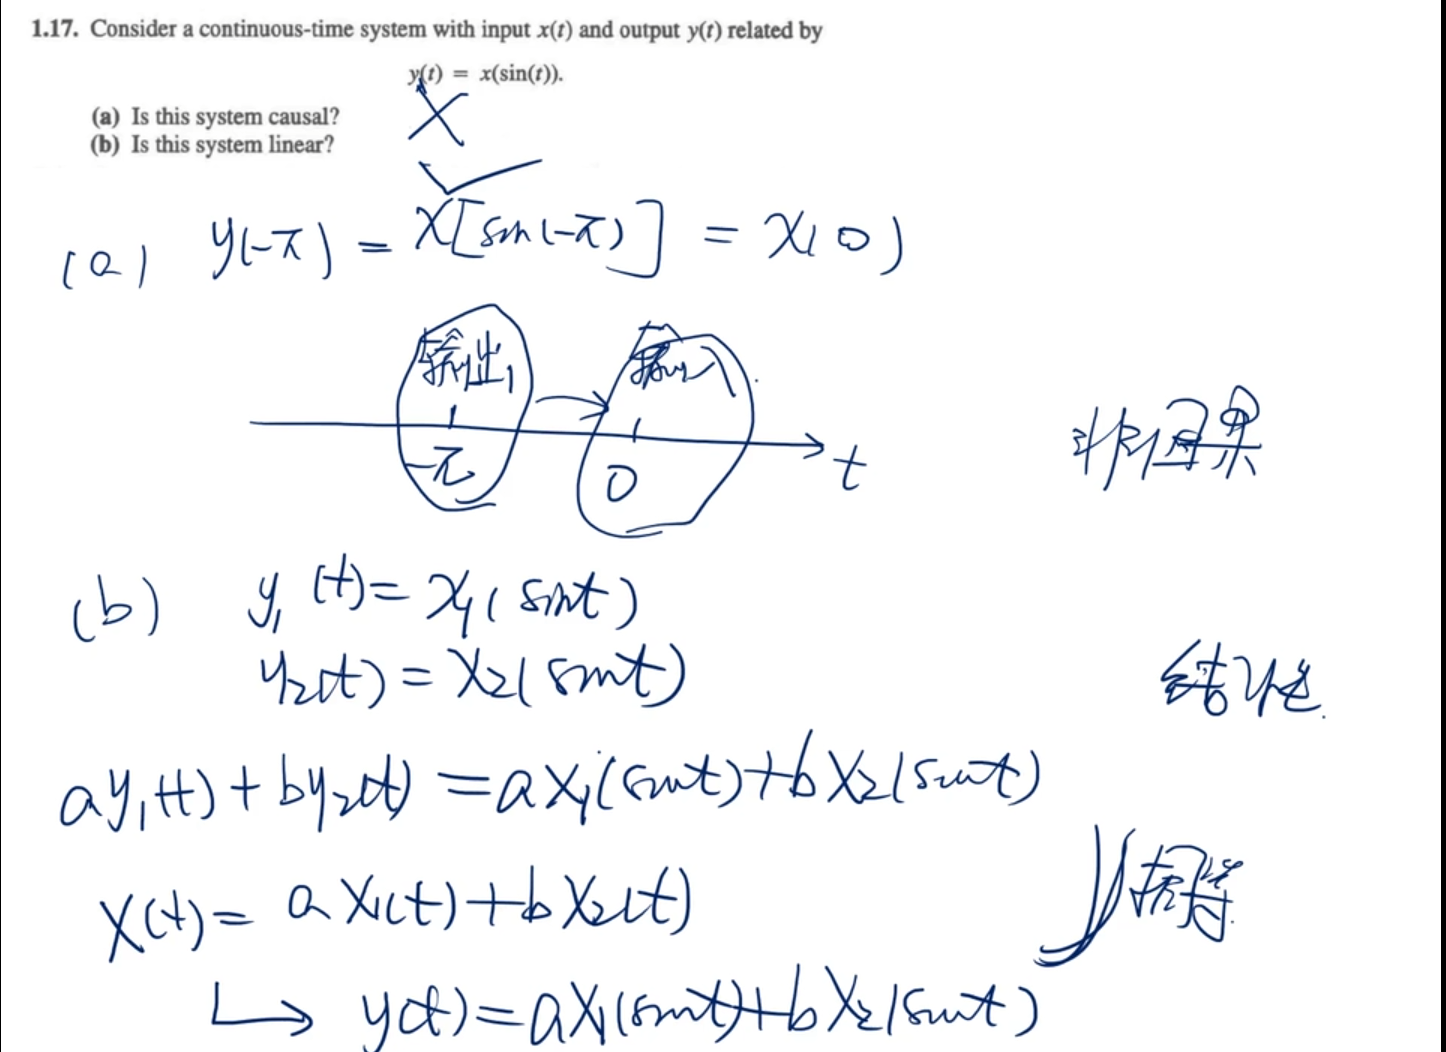 1.17. Consider a continuous-time system with input x(t) and output y(t) related by
y(t) = x(sin(t)).
(a) Is this system causal?
(b) Is this system linear?
(a) y(-π) = x[sin(-π)] = x(0)
输出 输入
-π 0 t
非因果
(b) y₁(t) = x₁(sint)
y₂(t) = x₂(sint)
线性
ay₁(t) + by₂(t) = ax₁(sint) + bx₂(sint)
x(t) = ax₁(t) + bx₂(t)
相等
↳ y(t) = ax₁(sint) + bx₂(sint)